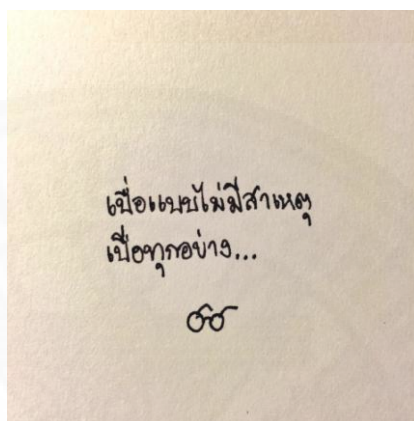 เบื่อแบบไม่มีสาเหตุ
เบื่อทุกอย่าง...